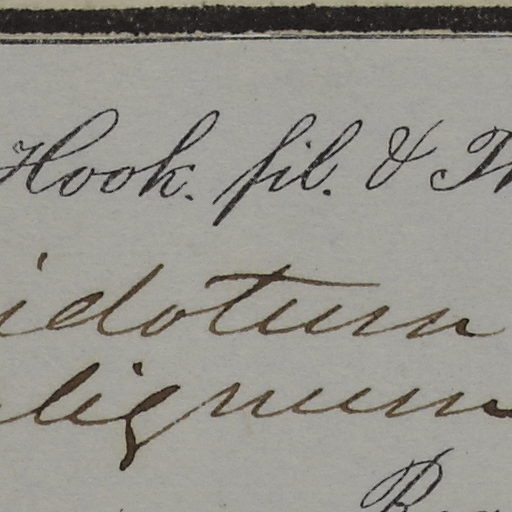 Hook. fil. & Th
idotum
lignum